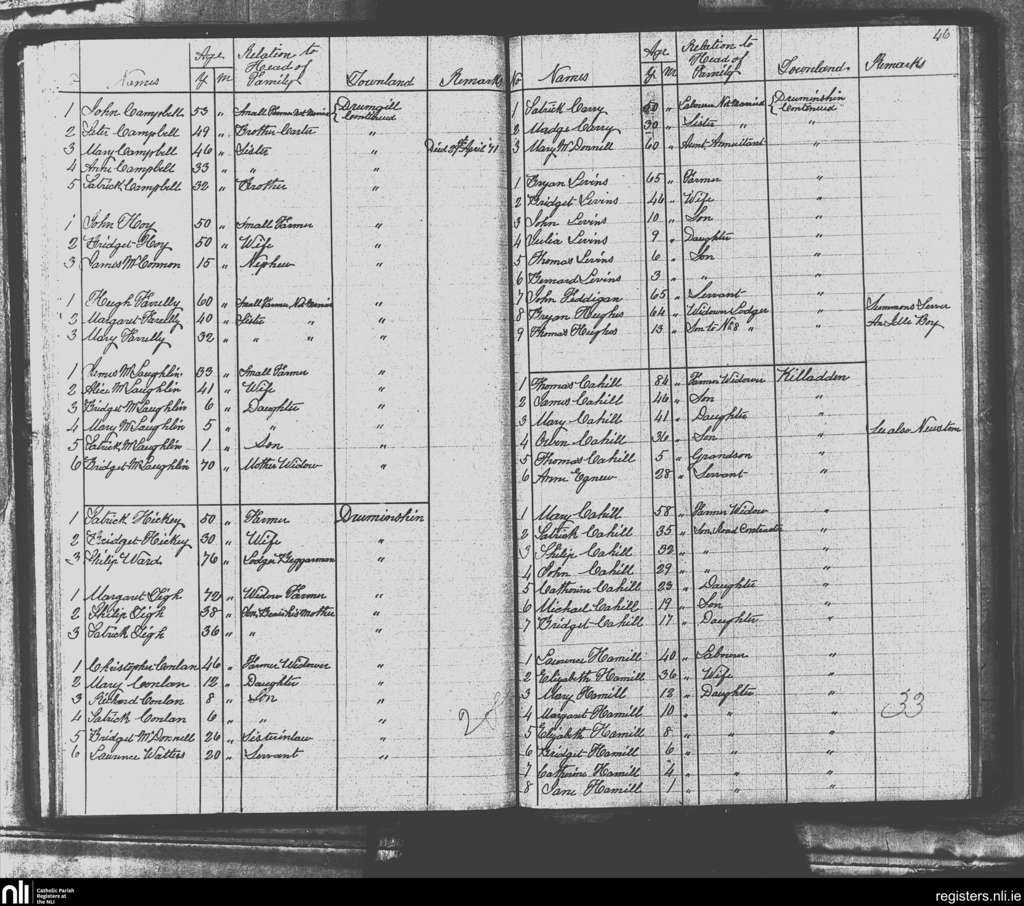 Names Age Y M Relation to Head of Family Townland Remarks
1 John Campbell 53 " Small Farmer Not Married { Drumgill Continued
2 Peter Campbell 49 " Brother Carter "
3 Mary Campbell 46 " Sister " Died 27th April '71
4 Anne Campbell 33 " " "
5 Patrick Campbell 32 " Brother "
1 John Hoy 50 " Small Farmer "
2 Bridget Hoy 50 " Wife "
3 James McConnon 15 " Nephew "
1 Hugh Farrelly 60 " Small Farmer Not Married "
2 Margaret Farrelly 40 " Sister " "
3 Mary Farrelly 32 " " " "
1 James McLaughlin 33 " Small Farmer "
2 Alice McLaughlin 41 " Wife "
3 Bridget McLaughlin 6 " Daughter "
4 Mary McLaughlin 5 " " "
5 Patrick McLaughlin 1 " Son "
6 Bridget McLaughlin 70 " Mother Widow "
1 Patrick Hickey 50 " Farmer Druminshin
2 Bridget Hickey 30 " Wife "
3 Philip Ward 76 " Lodger Beggarman "
1 Margaret Tigh 72 " Widow Farmer "
2 Philip Tigh 38 " Son, mother "
3 Patrick Tigh 36 " " "
1 Christopher Conlan 46 " Farmer Widower "
2 Mary Conlan 12 " Daughter "
3 Richard Conlan 8 " Son "
4 Patrick Conlan 6 " " "
5 Bridget McDonnell 26 " Sisterinlaw "
6 Laurence Watters 20 " Servant "
28
46
No Names Age Y M Relation to Head of Family Townland Remarks
1 Patrick Carry " Labourer Not Married { Druminshin Continued
2 Madge Carry 30 " Sister " "
3 Mary McDonnell 60 " Aunt, Annuitant
1 Bryan Levins 65 " Farmer "
2 Bridget Levins 44 " Wife "
3 John Levins 10 " Son "
4 Julia Levins 9 " Daughter "
5 Thomas Levins 6 " Son "
6 Bernard Levins 3 " " "
7 John Peddigan 65 " Servant "
8 Bryan Hughes 64 " Widower Lodger " Summons Server
9 Thomas Hughes 13 " Son to No 8 " " An Idle Boy
1 Thomas Cahill 84 " Farmer Widower Killadden
2 James Cahill 46 " Son "
3 Mary Cahill 41 " Daughter "
4 Owen Cahill 36 " Son " See also Newtown
5 Thomas Cahill 5 " Grandson "
6 Anne Egnew 28 " Servant "
1 Mary Cahill 58 " Farmer Widow "
2 Patrick Cahill 35 " Son Road Contractor "
3 Philip Cahill 32 " " "
4 John Cahill 29 " " "
5 Catherine Cahill 23 " Daughter "
6 Michael Cahill 19 " Son "
7 Bridget Cahill 17 " Daughter "
1 Laurence Hamill 40 " Labourer "
2 Elizabeth Hamill 36 " Wife "
3 Mary Hamill 12 " Daughter "
4 Margaret Hamill 10 " " "
5 Elizabeth Hamill 8 " " "
6 Bridget Hamill 6 " " "
7 Catherine Hamill 4 " " "
8 Jane Hamill 1 " " "
33
nli Catholic Parish Registers at the NLI
registers.nli.ie